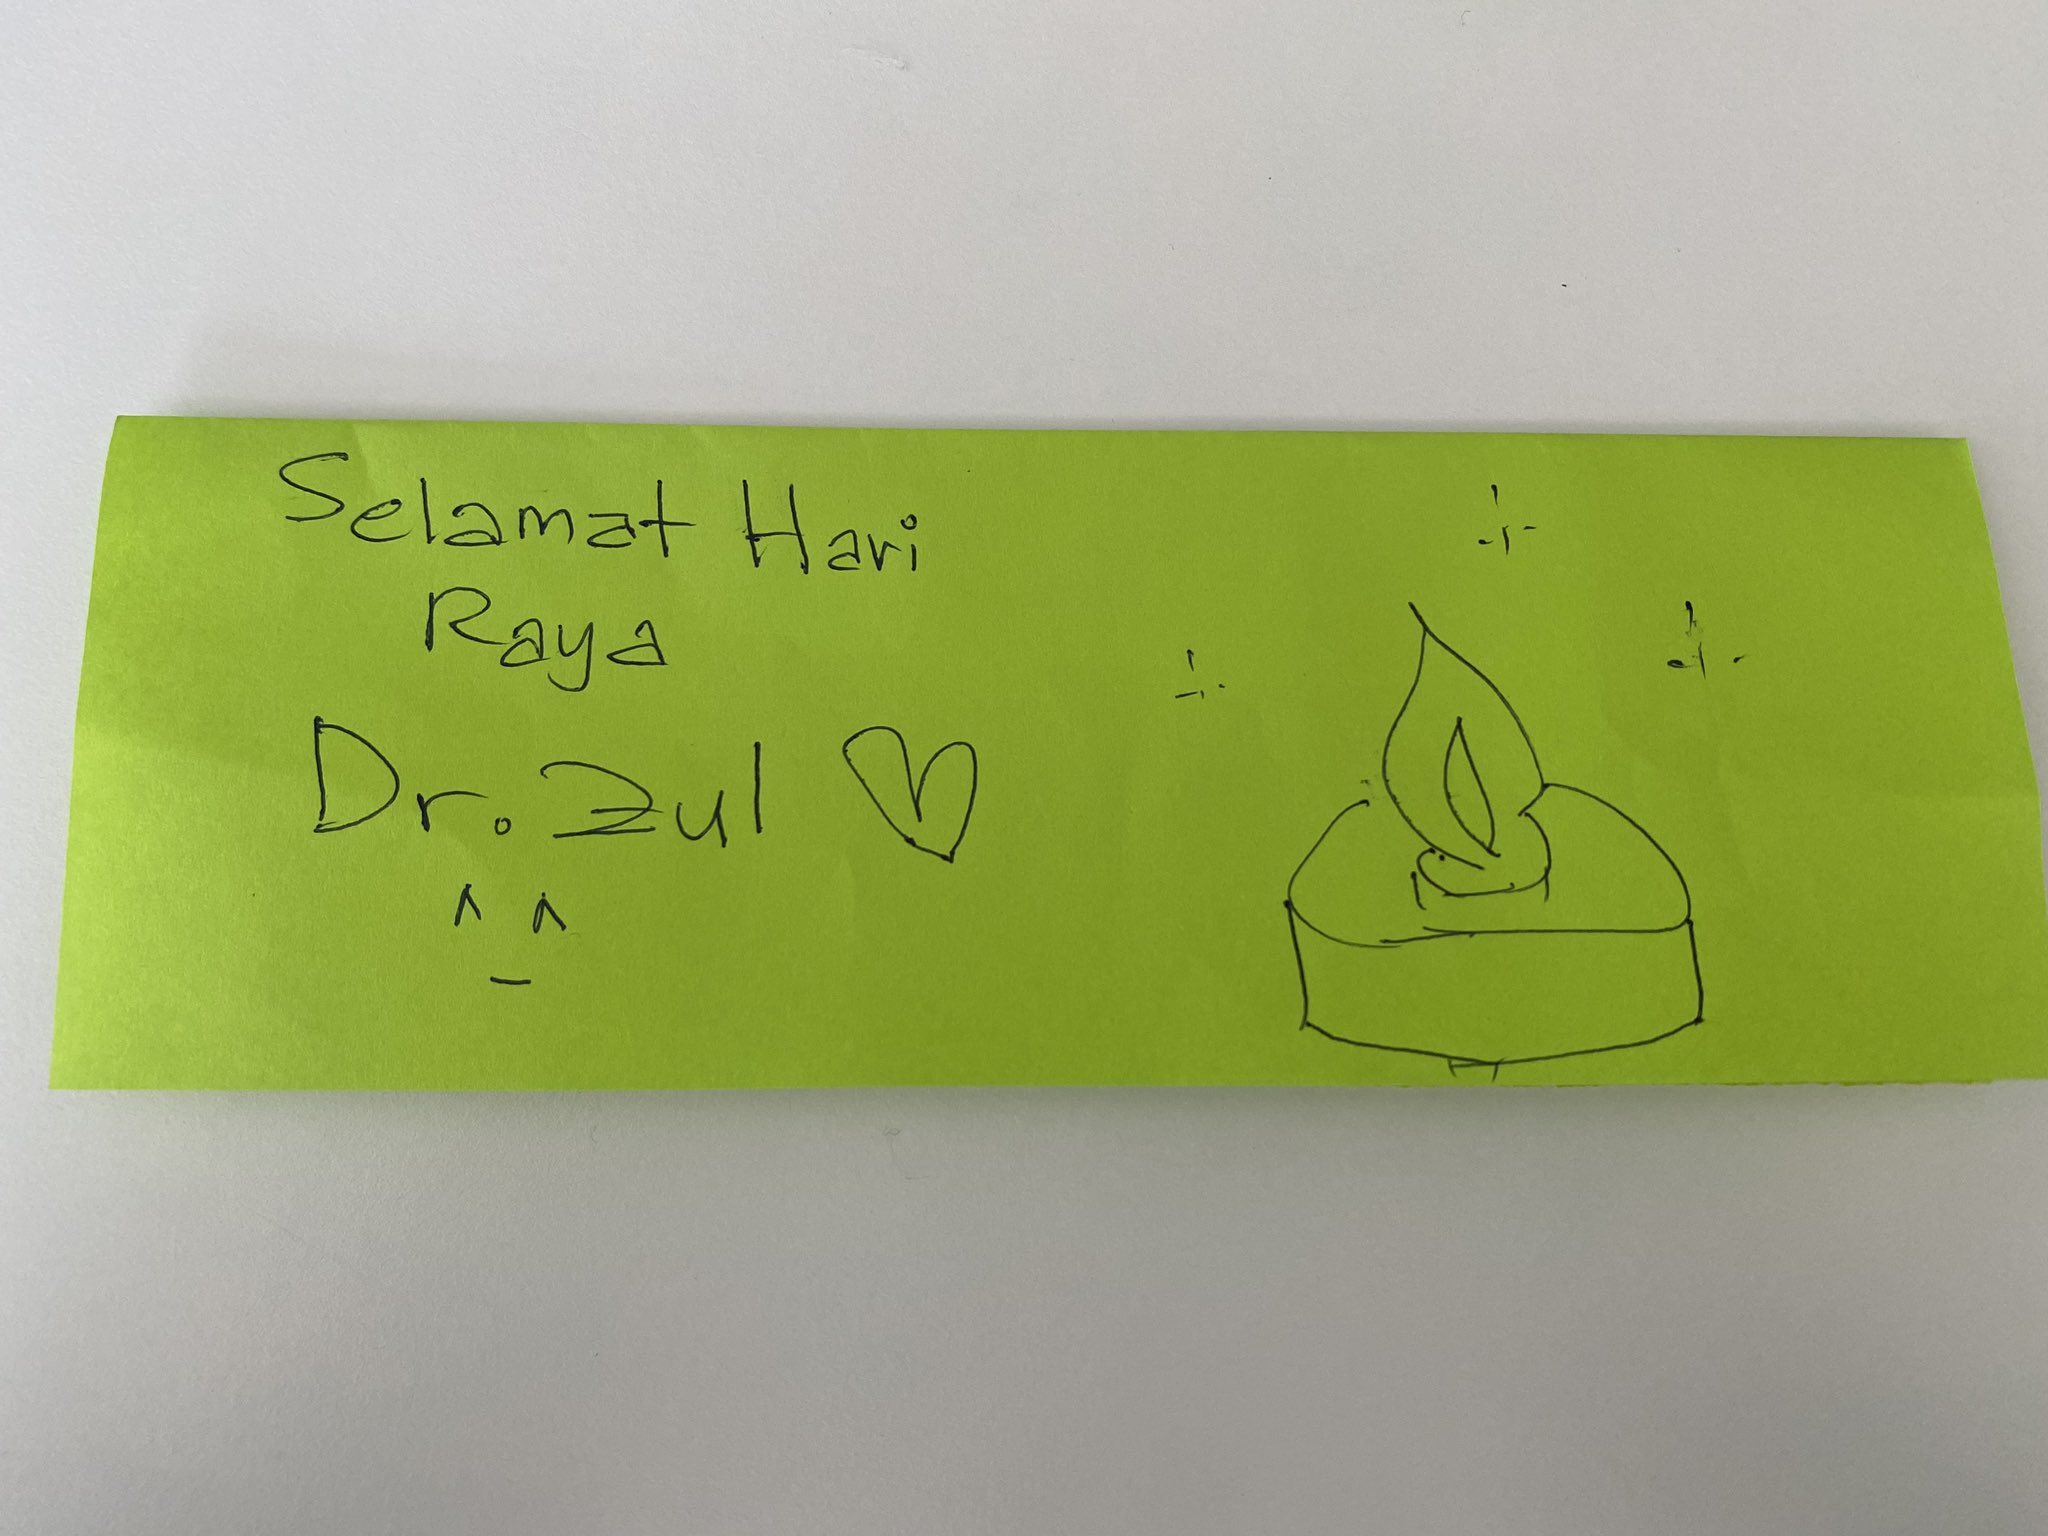 Selamat Hari
Raya
Dr. Zul ♡
^ ^
-